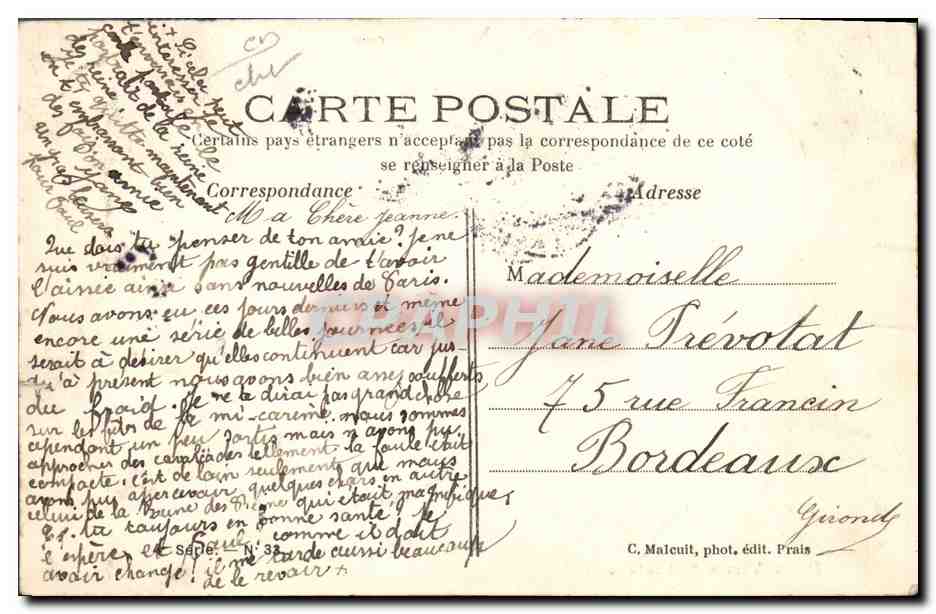 CARTE POSTALE
Certains pays étrangers n'acceptant pas la correspondance de ce coté
se renseigner à la Poste
Correspondance
Adresse
Ma Chère Jeanne.
Que dois tu penser de ton amie? Je ne
suis vraiment pas gentille de t'avoir
laissée ainsi sans nouvelles de Paris.
Nous avons eu ces jours derniers et même
encore une série de belles journées, il
serait à désirer qu'elles continuent car jus-
qu'à présent nous avons bien assez soufferts
du froid. Je ne te dirai pas grand chose
sur les fêtes de la mi-carême nous sommes
cependant un peu sortis mais n'avons pu
approcher des cavalcades tellement la foule était
compacte; c'est de loin seulement que nous
avons pu apercevoir quelques chars en autre
celui de la Reine des Reines qui était magnifique.
Es-tu toujours en bonne santé, je
l'espère, et comme il doit
avoir changé! il me tarde aussi beaucoup
de le revoir +
+ Si cela peut
t'intéresser je
t'enverrais
carte postale le
portrait de la reine
des reines
Je te quitte maintenant
en t'embrassant bien
des fois
Ton amie
Mademoiselle
Jane Trévotat
75 rue Francin
Bordeaux
Gironde
4e Série. - N° 33
C. Malcuit, phot. édit. Prais
CPAPHIL